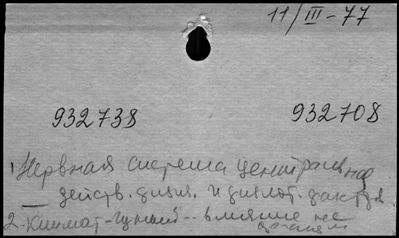 11/III-77
932738 932708
1. Нервная система центральная
— действ. физ. и физиол. факторов
2. Климат - горный - влияние на организм